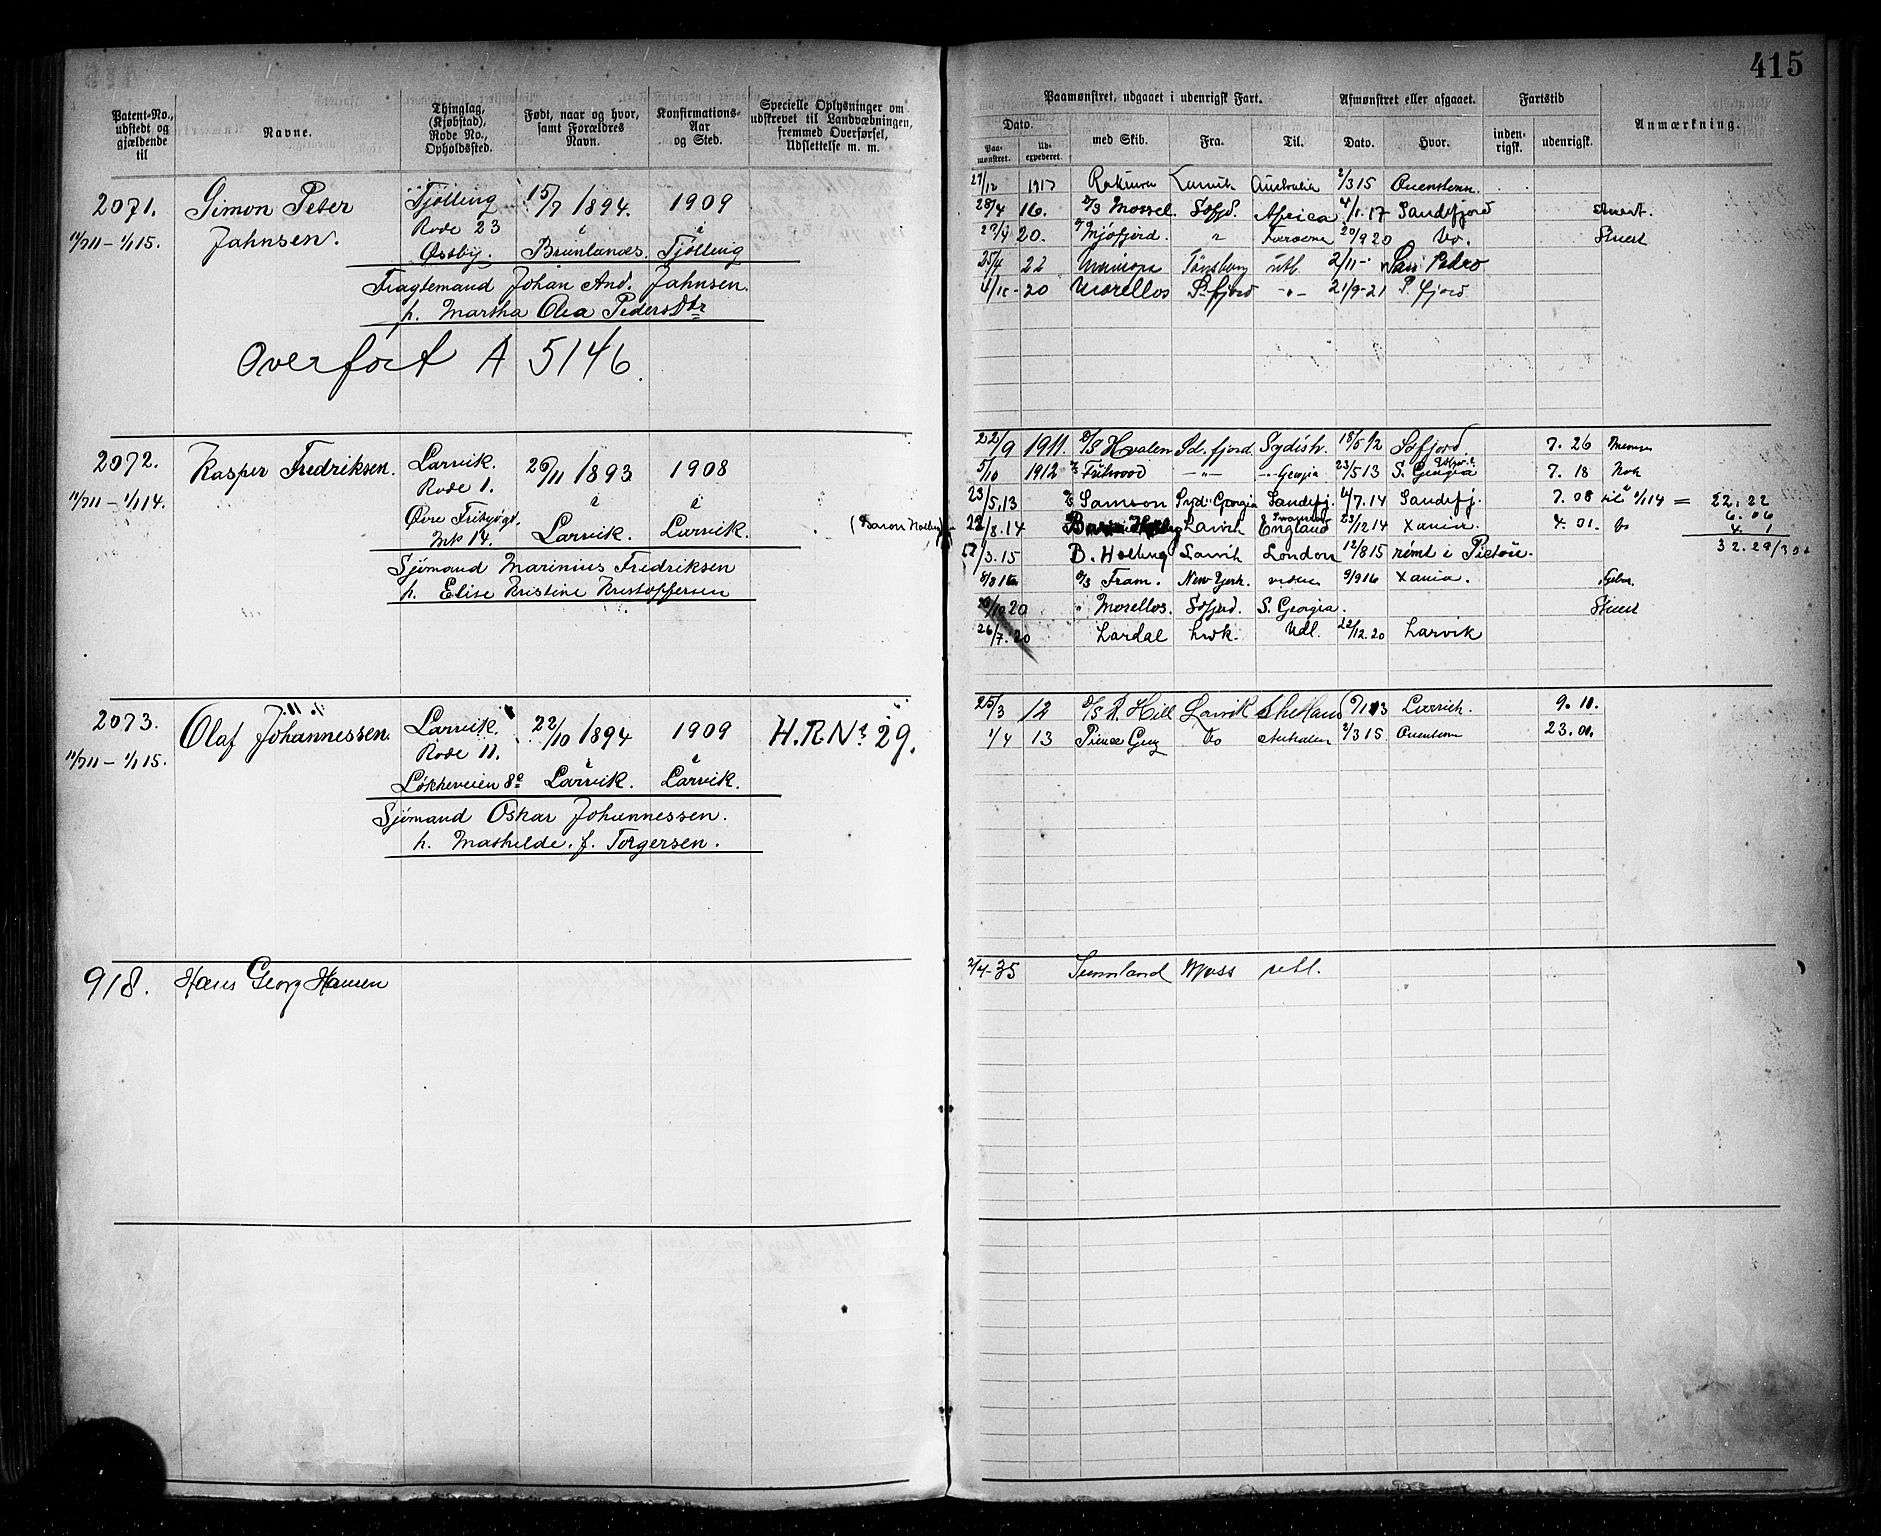 415
Patent-No., udstedt og gjældende til
Navne.
Thinglag, (Kjøbstad), Rode No., Opholdssted.
Født, naar og hvor, samt Forældres Navn.
Konfirmations-Aar og Sted.
Specielle Oplysninger om udskrevet til Landvæbningen, fremmed Overførsel, Udslettelse m. m.
Paamønstret, udgaaet i udenrigsk Fart.
Afmønstret eller afgaaet.
Fartstid
Anmærkning.
Dato.
med Skib.
Fra.
Til.
Dato.
Hvor.
inden-rigsk.
udenrigsk.
Paa-mønstret.
Ud-expederet.
2071.
11/7 11 – 1/1 15.
Simon Peter
Jahnsen.
Tjølling
Rode 23
Østby.
15/7 1894.
i
Brunlanæs.
1909
i
Tjølling
Fragtemand Johan And. Jahnsen.
h. Martha Olea Pedersdtr
Overført A 5146.
Australia 2/3 15
28/4 16. D/S Mossel. Sdfjd. Africa 4/1.17 Sandefjord
29/4 20. Mjøfjord. " 20/9 20 do. Stuert
25/4 22 Tønsberg utl. 2/11 - San Pedro
20 Morellos S.fjord -"- 21/9-21 S. fjord
2072.
11/7 11 – 1/1 14.
Kasper Fredriksen.
Larvik.
Rode 1.
Øvre Fribøjgd.
Mk 14.
26/11 1893
i
Larvik.
1908
i
Larvik.
Sjømand Marinius Fredriksen
h. Elise Kristine Kristoffersen
22/9 1911. D/S Hvalen Sd. fjord 18/5 12 Sdfjord 7. 26
5/10 1912 -"- Georgia 23/5 13 S. Georgia 7. 18 Kok
23/5.13 Samson Syd: Georgia Sandefj. 6/7.14 Sandefj. 7. 08 til 1/1 14 = 22. 22
6. 06
22/8.14 Larvik England 23/12 14 Xania. 4. 01. do 4. 1
32. 29/30
/3.15 B. Holberg Larvik London 12/8 15 rømt i Pictou.
Fram. New York. 9/9 16 Xania.
20 " Morellos. Sdfjrd. S. Georgia. Stuert
26/7.20 Lardal Lvk. Udl. 22/12.20 Larvik
2073.
11/7 11 – 1/1 15.
Olaf Johannessen.
Larvik.
Rode 11.
Løkkeveien 8c
22/10 1894
i
Larvik.
1909
i
Larvik.
H.R.No 29.
Sjømand Oskar Johannessen.
h. Mathilde. f. Torgersen.
25/3 12 D/S R. Hill Larvik Shetland Larvik. 9. 10.
1/4 13 do Australien 2/3 15 23. 01.
918.
Hans Georg Hansen
2/4-35 Sunnland Moss utl.